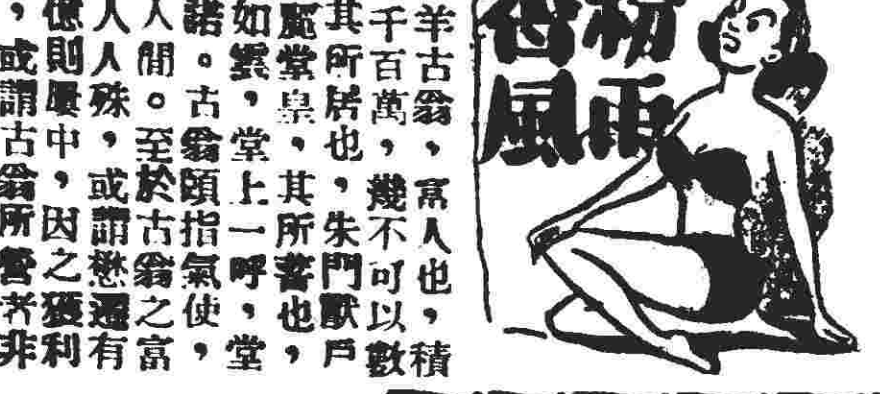 粉雨
香風
羊古翁，富人也，積
千百萬，幾不可以數
其所居也，朱門獸戶
堂皇，其所蓄也，
如雲，堂上一呼，堂
諾。古翁頤指氣使，
人間。至於古翁之富
人人殊，或謂懋遷有
億則屢中，因之獲利
，或謂古翁所營者非